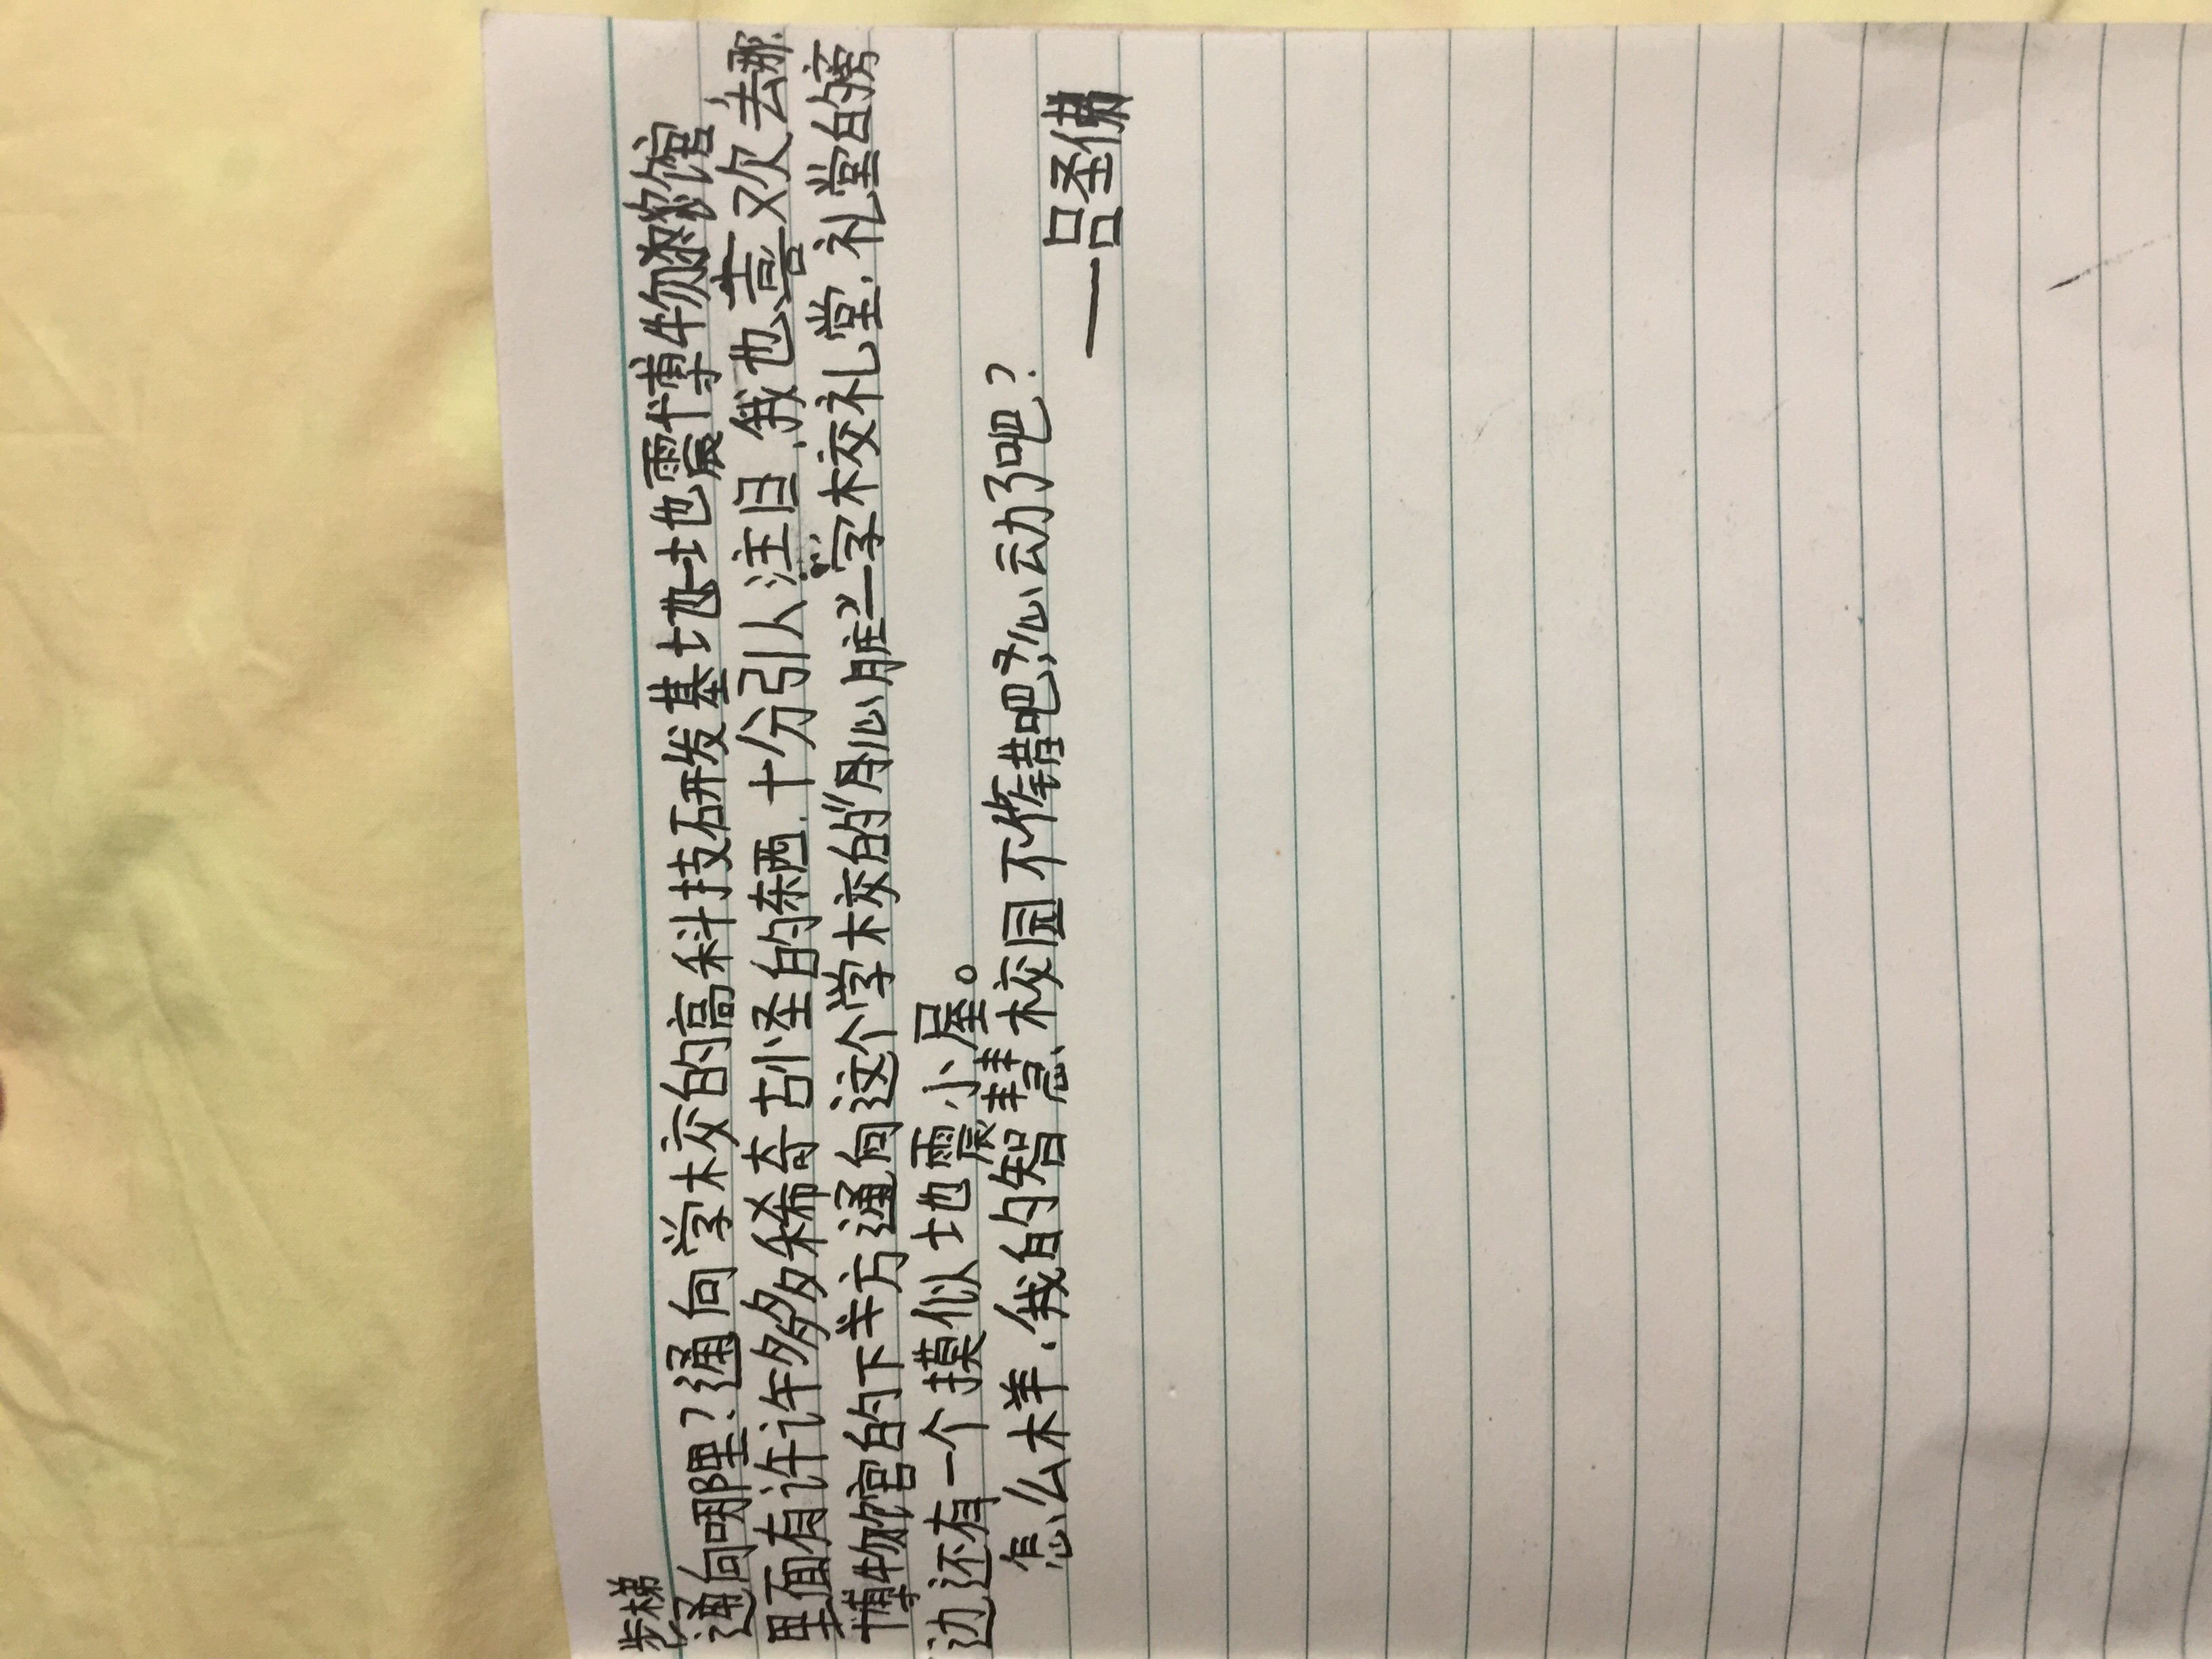 步梯
通向哪里？通向学校的高科技研发基地—地震博物馆
里面有许许多多稀奇古怪的东西.十分引人注目,我也喜欢去那.
博物馆的下半方通向这个学校的“心脏”—学校礼堂.礼堂的旁
边还有一个摸似地震小屋。
怎么样.我的智慧校园不错吧？心动了吧？
——吕圣